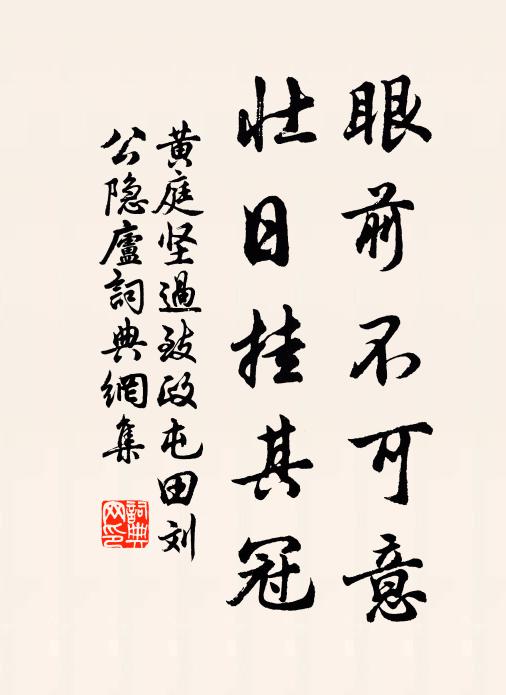 眼前不可意
壮日挂其冠
黄庭坚過致政屯田刘
公隐廬詞典網集
詞典
网印